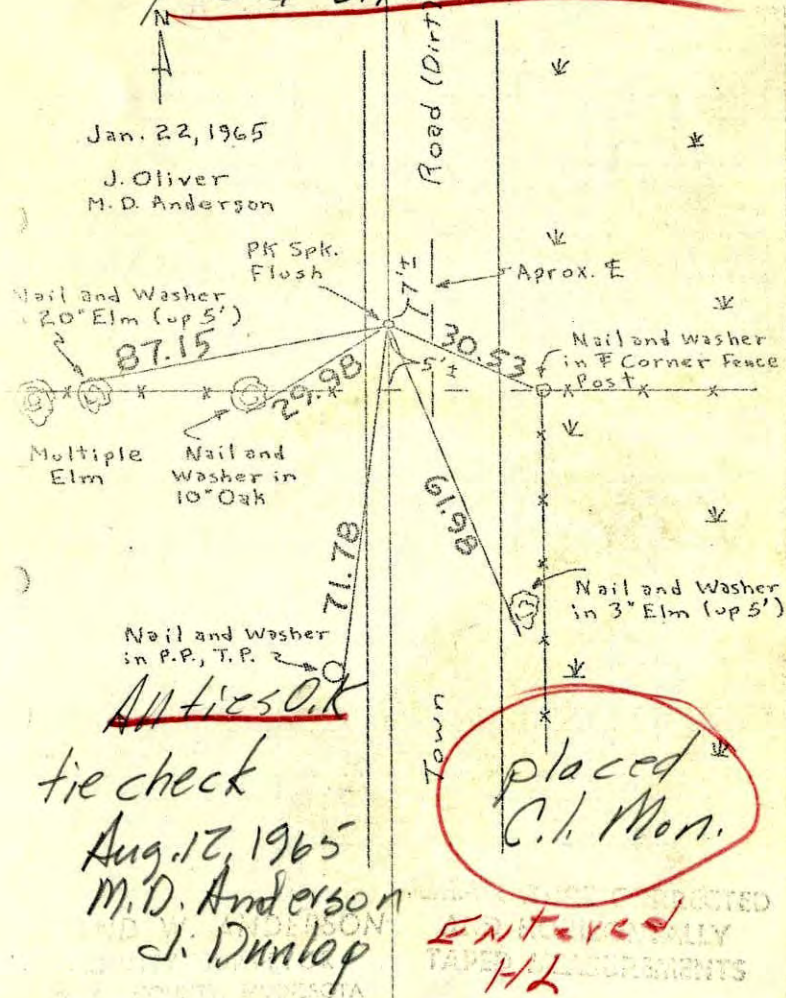 N
Jan. 22, 1965
J. Oliver
M. D. Anderson
Road (Dirt)
PK Spk.
Flush
7'±
Aprox. ℄
Nail and Washer
20" Elm (up 5')
87.15
29.98
30.53
5'±
Nail and Washer
in Corner Fence
Post
Multiple
Elm
Nail and
Washer in
10" Oak
71.78
61.98
Nail and Washer
in 3" Elm (up 5')
Nail and Washer
in P.P., T.P.
Town
All ties O.K
tie check
Aug. 12, 1965
M.D. Anderson
J. Dunlop
placed
C.I. Mon.
Entered
HL
TAPED MEASUREMENTS
COUNTY, MINNESOTA